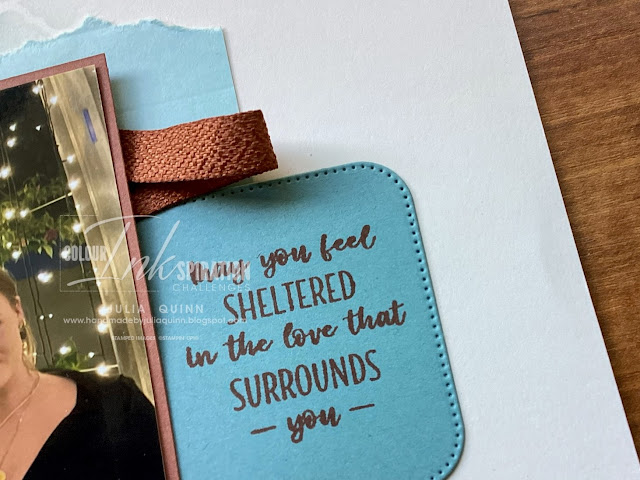 may you feel
SHELTERED
in the love that
SURROUNDS
— you —
COLOUR Ink SPIRATION
CHALLENGES
JULIA QUINN
www.handmadebyjuliaquinn.blogspot.com